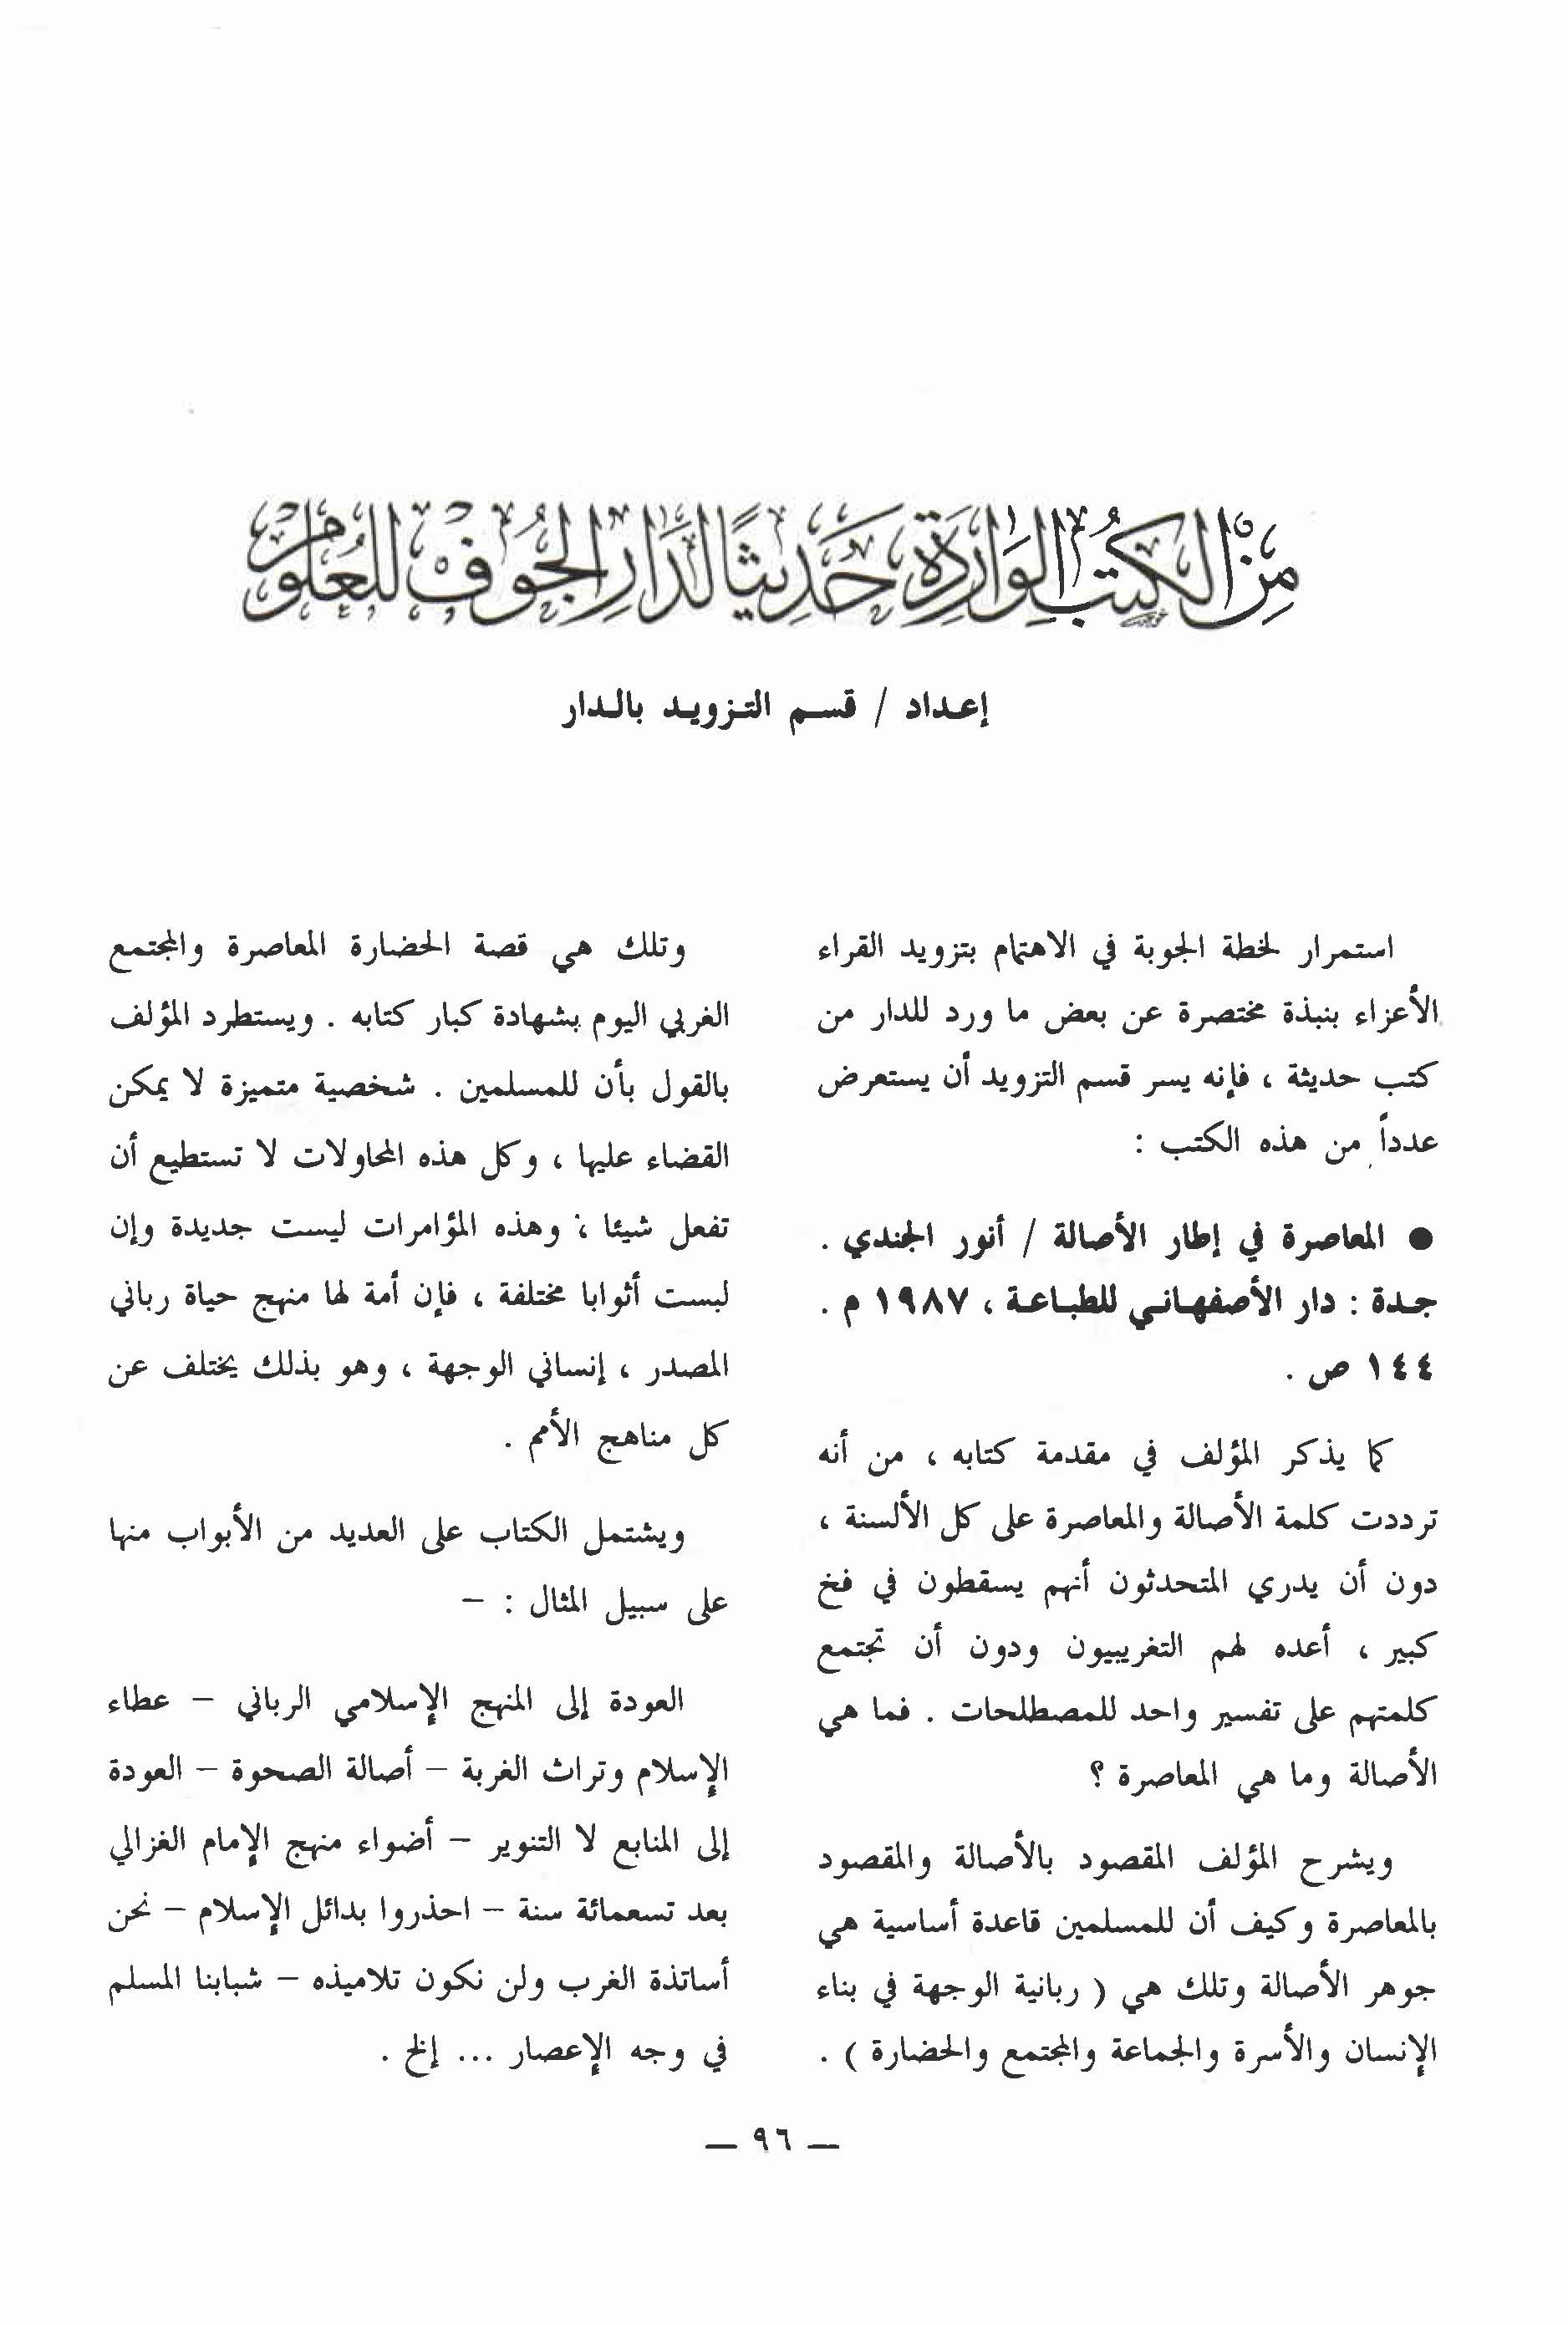 من الكتب الواردة حديثا لدار الجوف للعلوم
إعداد / قسم التزويد بالدار
استمرار لخطة الجوبة في الاهتمام بتزويد القراء
الأعزاء بنبذة مختصرة عن بعض ما ورد للدار من
كتب حديثة ، فإنه يسر قسم التزويد أن يستعرض
عدداً من هذه الكتب :
● المعاصرة في إطار الأصالة / أنور الجندي .
جدة : دار الأصفهاني للطباعة ، ١٩٨٧ م .
١٤٤ ص .
كما يذكر المؤلف في مقدمة كتابه ، من أنه
ترددت كلمة الأصالة والمعاصرة على كل الألسنة ،
دون أن يدري المتحدثون أنهم يسقطون في فخ
كبير ، أعده لهم التغريبيون ودون أن تجتمع
كلمتهم على تفسير واحد للمصطلحات . فما هي
الأصالة وما هي المعاصرة ؟
ويشرح المؤلف المقصود بالأصالة والمقصود
بالمعاصرة وكيف أن للمسلمين قاعدة أساسية هي
جوهر الأصالة وتلك هي ( ربانية الوجهة في بناء
الإنسان والأسرة والجماعة والمجتمع والحضارة ) .
وتلك هي قصة الحضارة المعاصرة والمجتمع
الغربي اليوم بشهادة كبار كتابه . ويستطرد المؤلف
بالقول بأن للمسلمين . شخصية متميزة لا يمكن
القضاء عليها ، وكل هذه المحاولات لا تستطيع أن
تفعل شيئا ، وهذه المؤامرات ليست جديدة وإن
لبست أثوابا مختلفة ، فإن أمة لها منهج حياة رباني
المصدر ، إنساني الوجهة ، وهو بذلك يختلف عن
كل مناهج الأمم .
ويشتمل الكتاب على العديد من الأبواب منها
على سبيل المثال : –
العودة إلى المنهج الإسلامي الرباني – عطاء
الإسلام وتراث الغربة – أصالة الصحوة – العودة
إلى المنابع لا التنوير – أضواء منهج الإمام الغزالي
بعد تسعمائة سنة – احذروا بدائل الإسلام – نحن
أساتذة الغرب ولن نكون تلاميذه – شبابنا المسلم
في وجه الإعصار ... إلخ .
— ٩٦ —